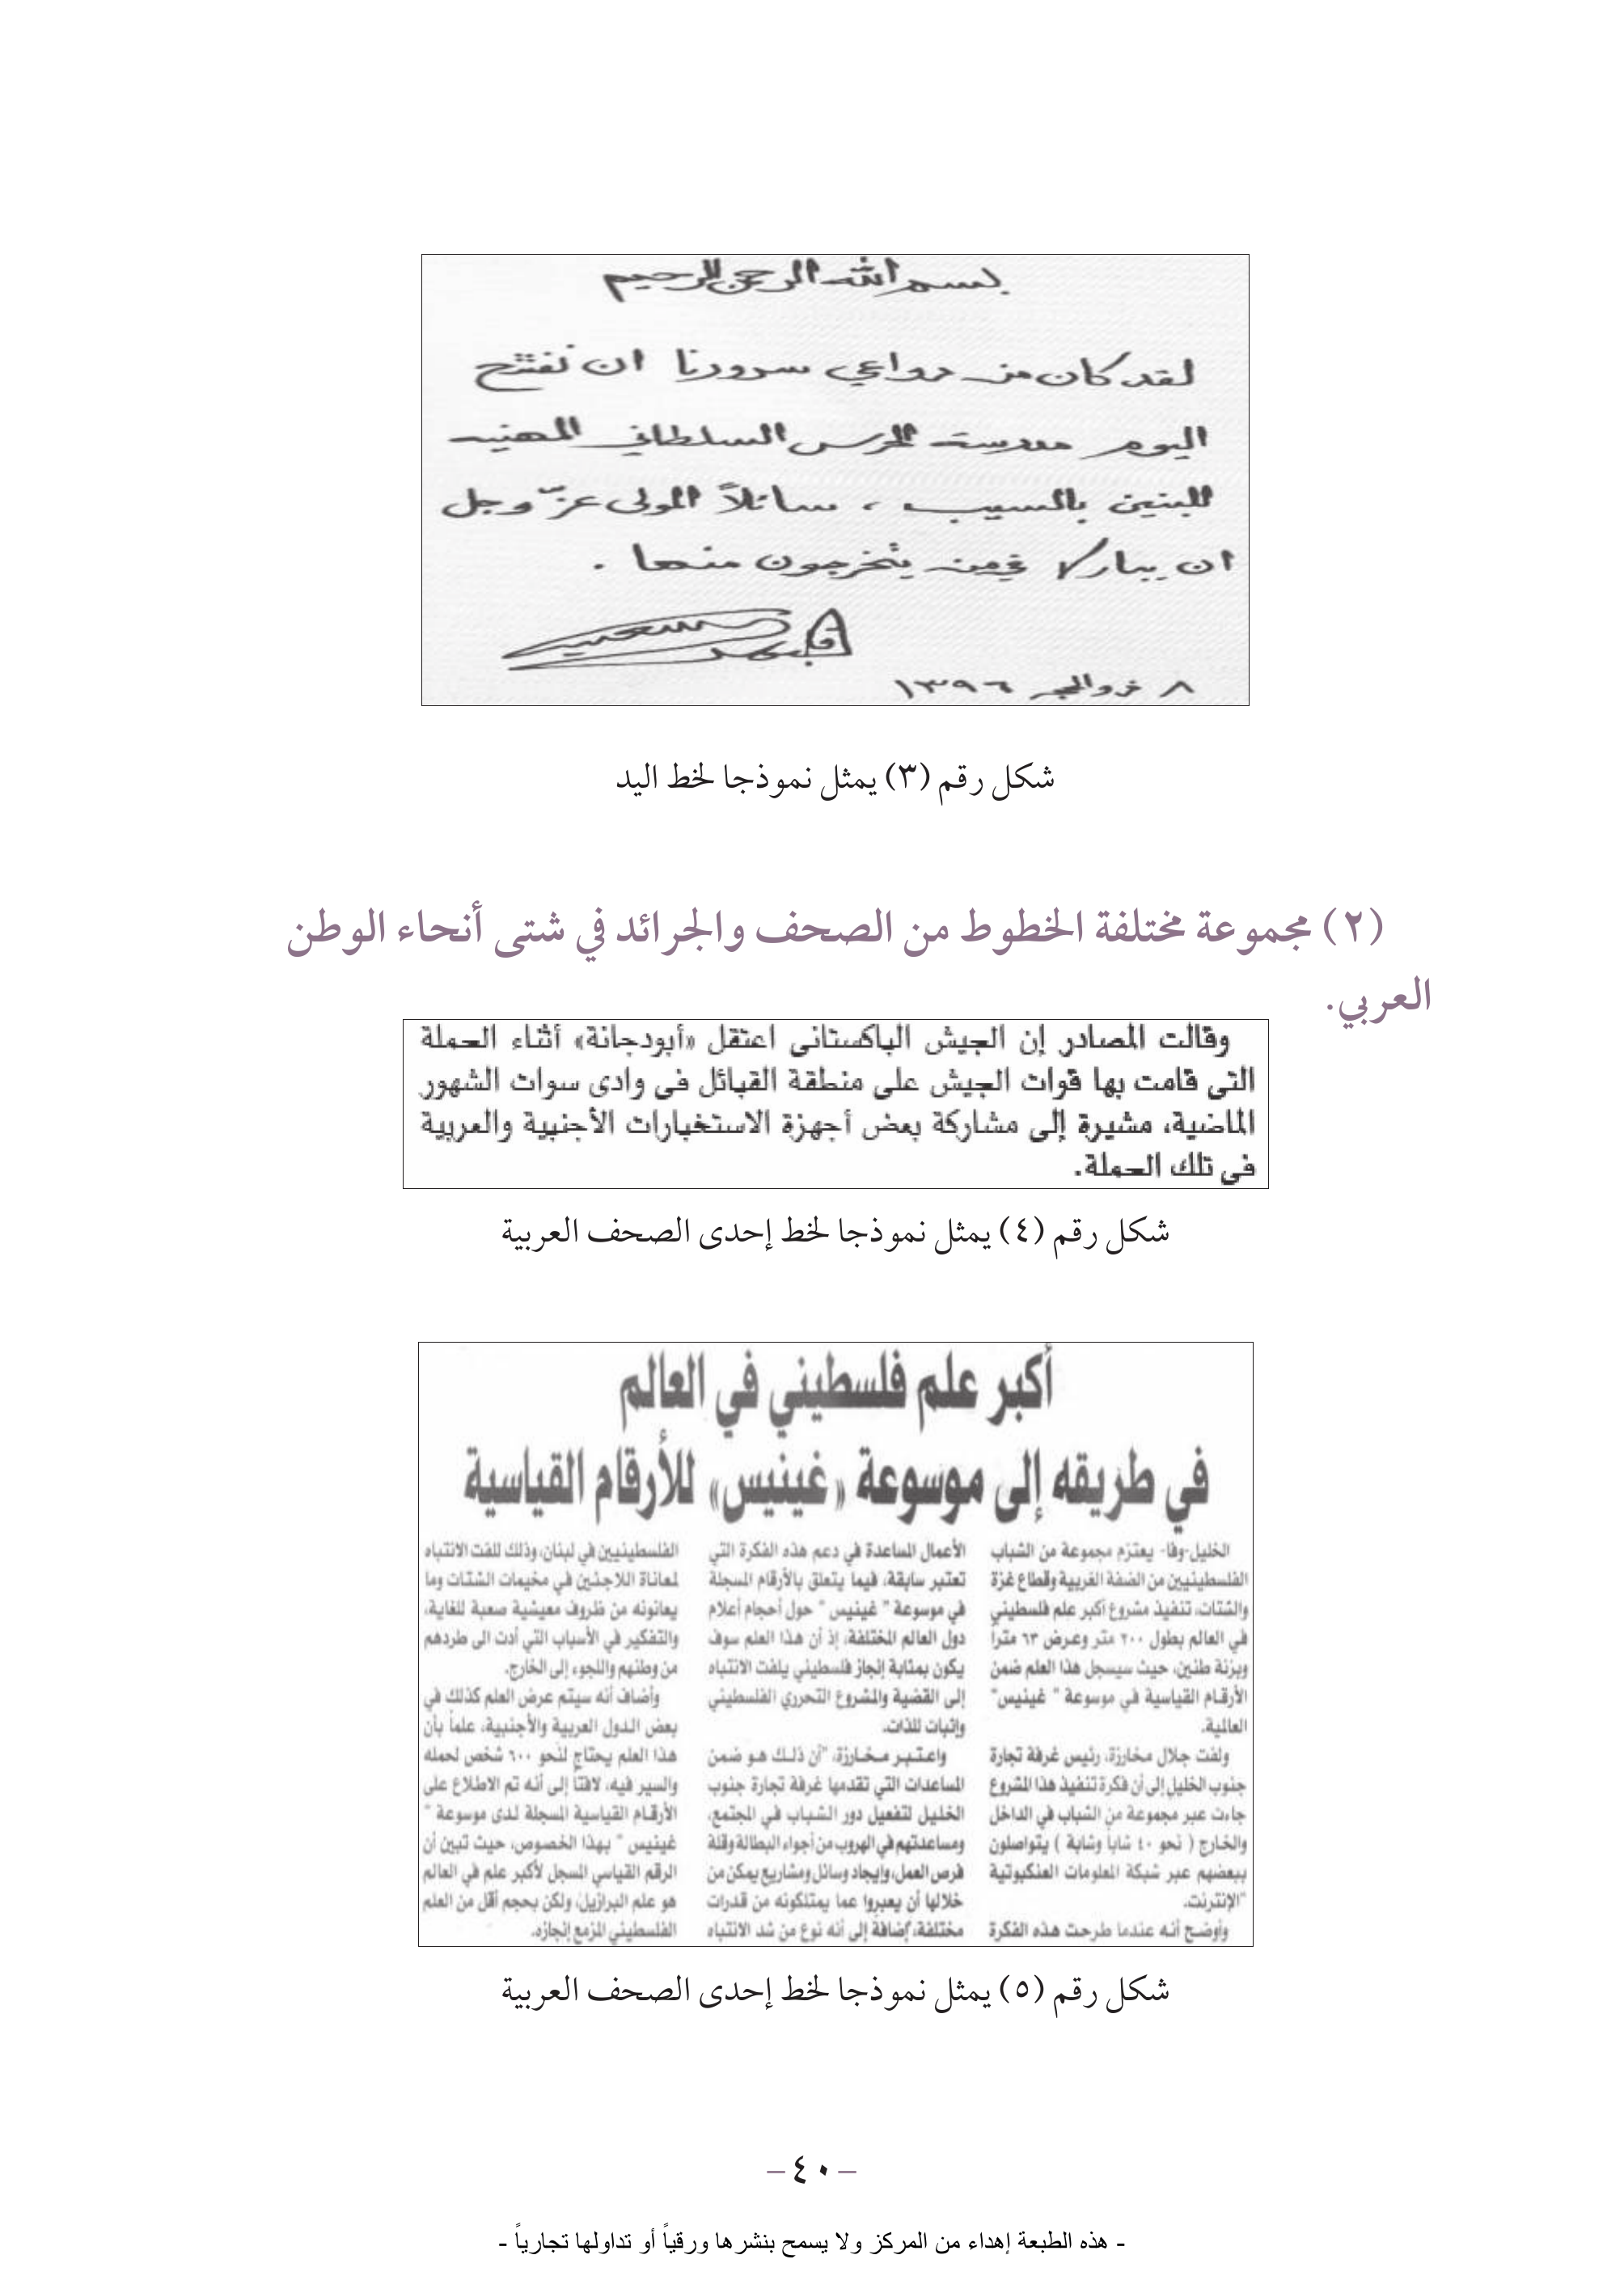 بسم الله الرحمن الرحيم
لقد كان من دواعي سرورنا ان نفتتح
اليوم مدرسة الحرس السلطاني المهنيه
للبنين بالسيب ، سائلاً المولى عزّ وجل
ان يبارك فيمن يتخرجون منها .
٨ ذو الحجه ١٣٩٦
شكل رقم (٣) يمثل نموذجا لخط اليد
(٢) مجموعة مختلفة الخطوط من الصحف والجرائد في شتى أنحاء الوطن
العربي.
وقالت المصادر إن الجيش الباكستانى اعتقل «أبودجانة» أثناء الحملة
التى قامت بها قوات الجيش على منطقة القبائل فى وادى سوات الشهور
الماضية، مشيرة إلى مشاركة بعض أجهزة الاستخبارات الأجنبية والعربية
فى تلك الحملة.
شكل رقم (٤) يمثل نموذجا لخط إحدى الصحف العربية
أكبر علم فلسطيني في العالم
في طريقه إلى موسوعة «غينيس» للأرقام القياسية
الخليل-وفا- يعتزم مجموعة من الشباب
الفلسطينيين من الضفة الغربية وقطاع غزة
والشتات، تنفيذ مشروع أكبر علم فلسطيني
في العالم بطول ٢٠٠ متر وعرض ٦٣ متراً
وبزنة طنين، حيث سيسجل هذا العلم ضمن
الأرقام القياسية في موسوعة " غينيس"
العالمية.
ولفت جلال مخارزة، رئيس غرفة تجارة
جنوب الخليل إلى أن فكرة تنفيذ هذا المشروع
جاءت عبر مجموعة من الشباب في الداخل
والخارج ( نحو ٤٠ شاباً وشابة ) يتواصلون
ببعضهم عبر شبكة المعلومات العنكبوتية
"الإنترنت.
وأوضح أنه عندما طرحت هذه الفكرة
الأعمال المساعدة في دعم هذه الفكرة التي
تعتبر سابقة، فيما يتعلق بالأرقام المسجلة
في موسوعة " غينيس " حول أحجام أعلام
دول العالم المختلفة، إذ أن هذا العلم سوف
يكون بمثابة إنجاز فلسطيني يلفت الانتباه
إلى القضية والمشروع التحرري الفلسطيني
واثبات للذات.
واعتبر مخارزة، "أن ذلك هو ضمن
المساعدات التي تقدمها غرفة تجارة جنوب
الخليل لتفعيل دور الشباب في المجتمع،
ومساعدتهم في الهروب من أجواء البطالة وقلة
فرص العمل، وإيجاد وسائل ومشاريع يمكن من
خلالها أن يعبروا عما يمتلكونه من قدرات
مختلفة، إضافة إلى أنه نوع من شد الانتباه
الفلسطينيين في لبنان، وذلك للفت الانتباه
لمعاناة اللاجئين في مخيمات الشتات وما
يعانونه من ظروف معيشية صعبة للغاية،
والتفكير في الأسباب التي أدت الى طردهم
من وطنهم واللجوء إلى الخارج.
وأضاف أنه سيتم عرض العلم كذلك في
بعض الدول العربية والأجنبية، علماً بأن
هذا العلم يحتاج لنحو ٦٠٠ شخص لحمله
والسير فيه، لافتاً إلى أنه تم الاطلاع على
الأرقام القياسية المسجلة لدى موسوعة "
غينيس " بهذا الخصوص، حيث تبين أن
الرقم القياسي المسجل لأكبر علم في العالم
هو علم البرازيل، ولكن بحجم أقل من العلم
الفلسطيني المزمع إنجازه.
شكل رقم (٥) يمثل نموذجا لخط إحدى الصحف العربية
–٤٠–
- هذه الطبعة إهداء من المركز ولا يسمح بنشرها ورقياً أو تداولها تجارياً -